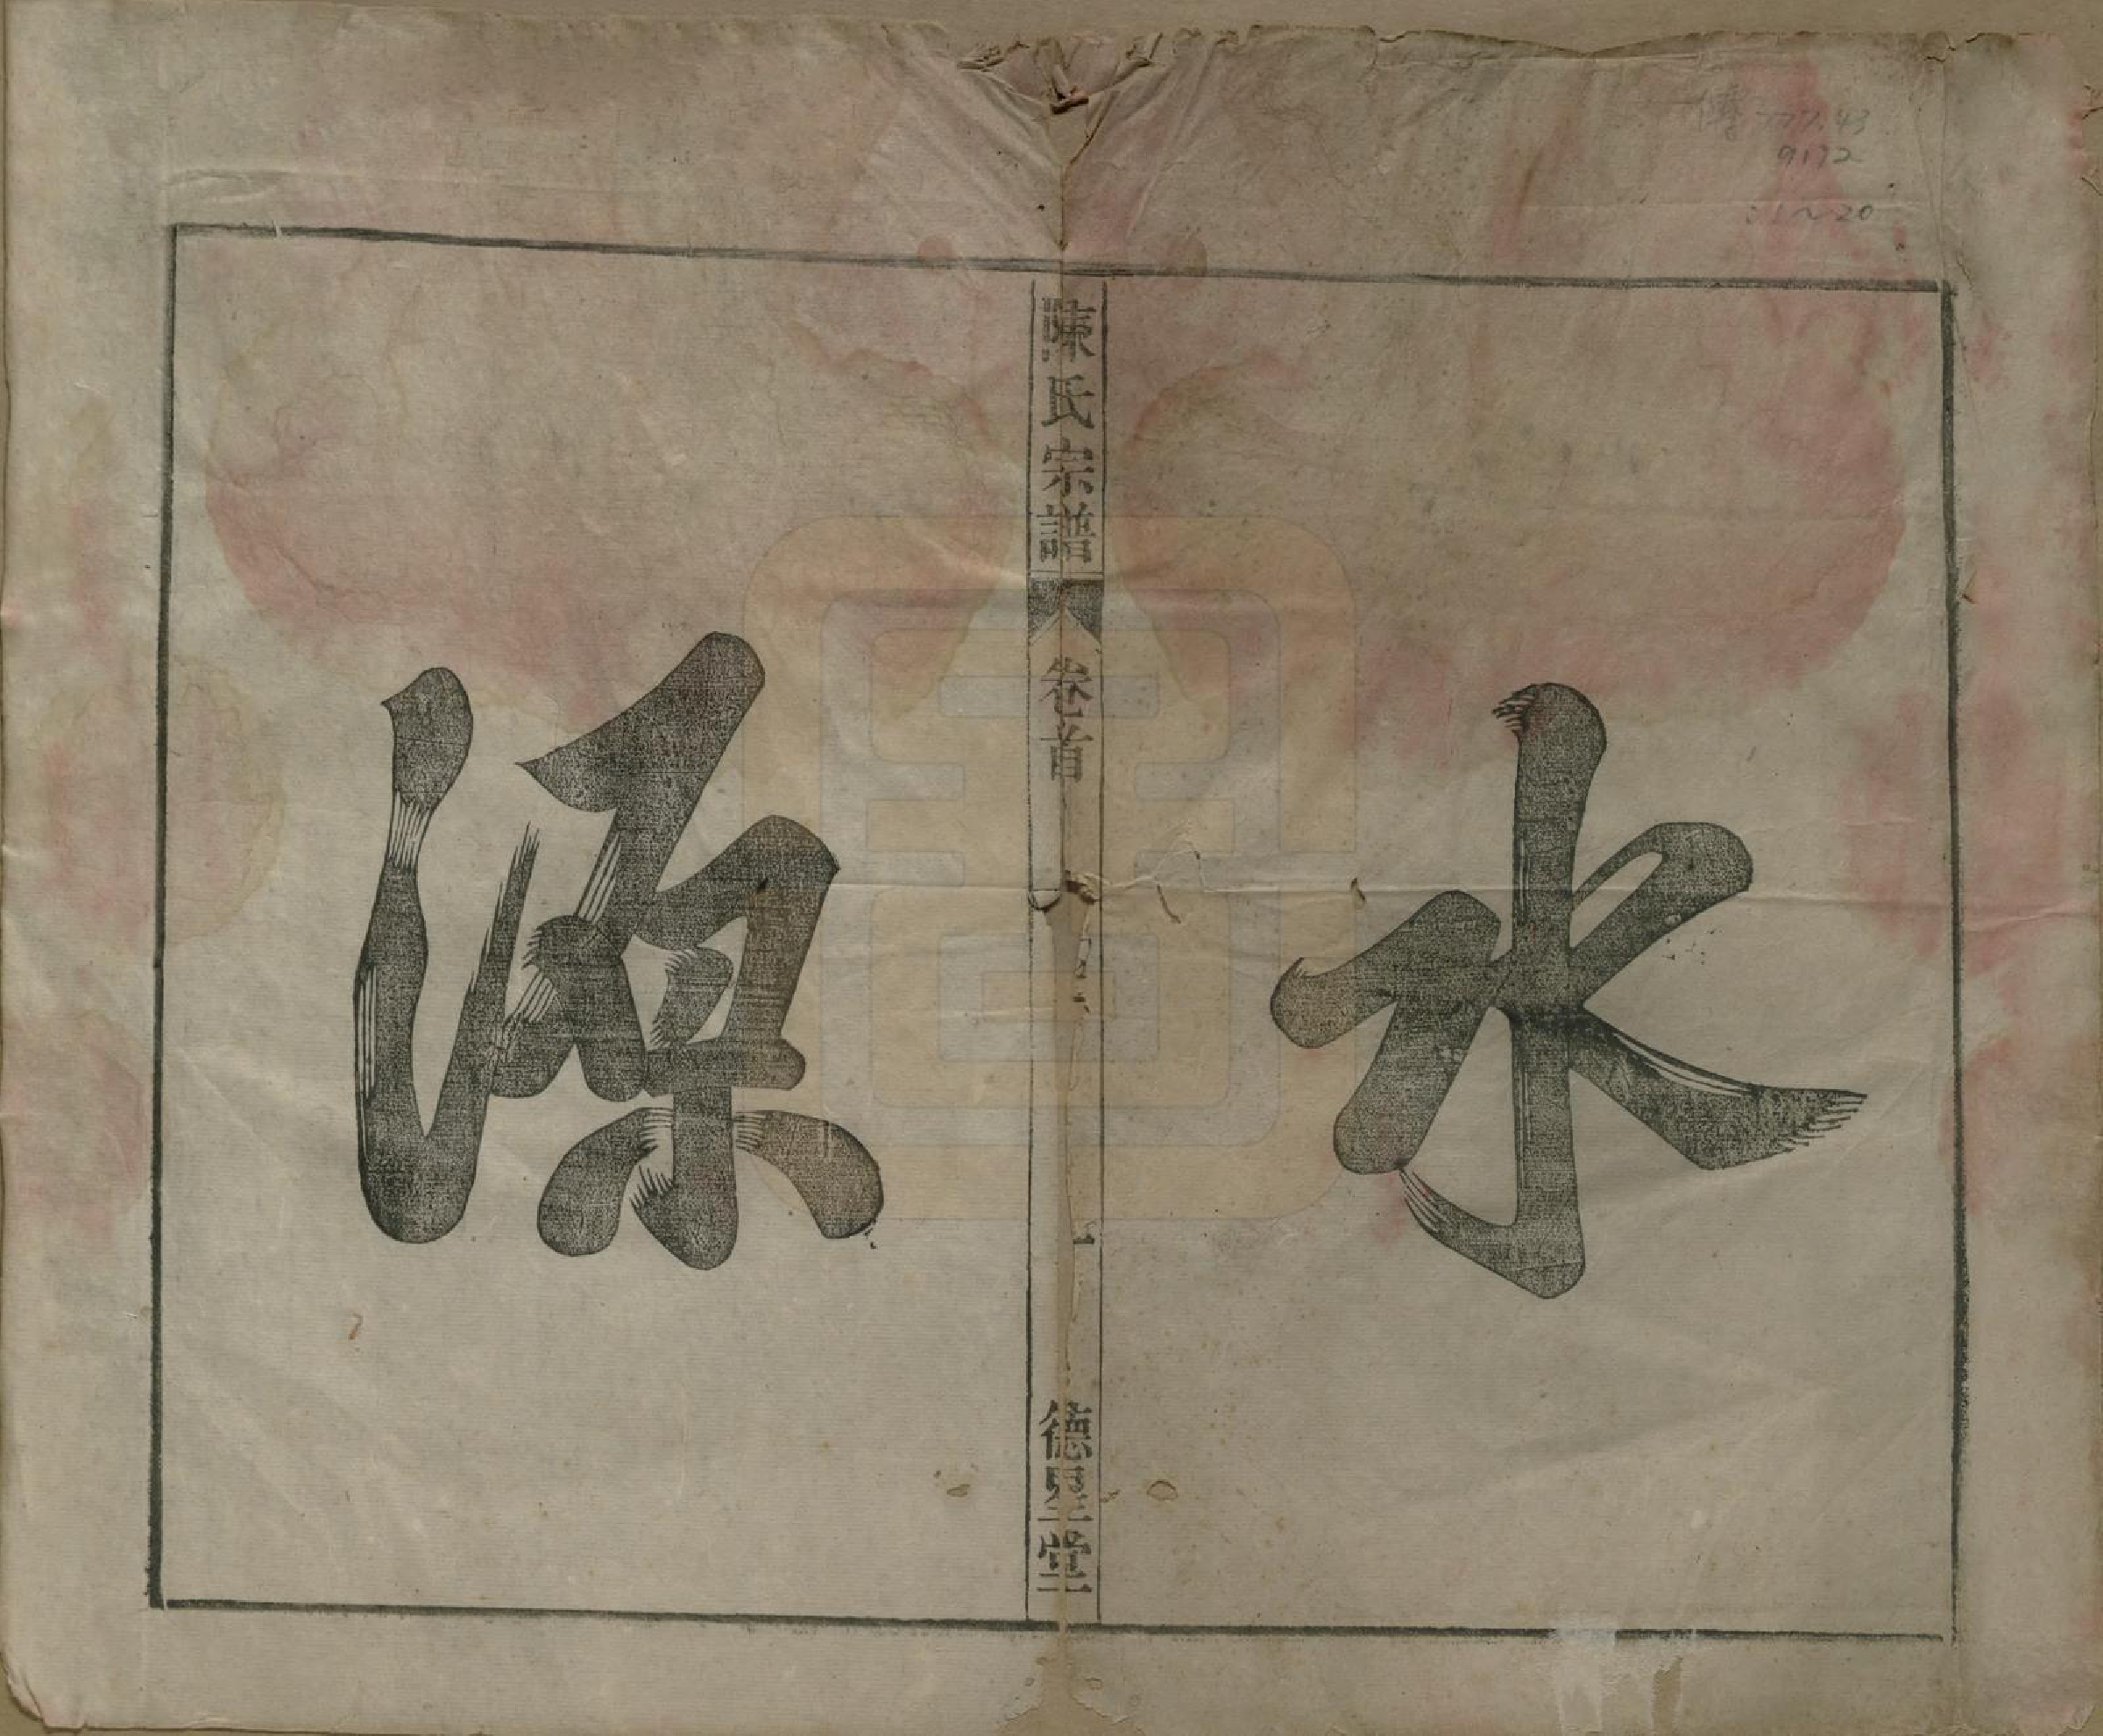 水
陳氏宗譜
卷首
一
德星堂
源
傳 777.43
9172
:1~20